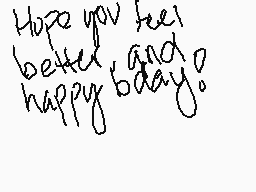 Hope you feel
better, and
happy bday!